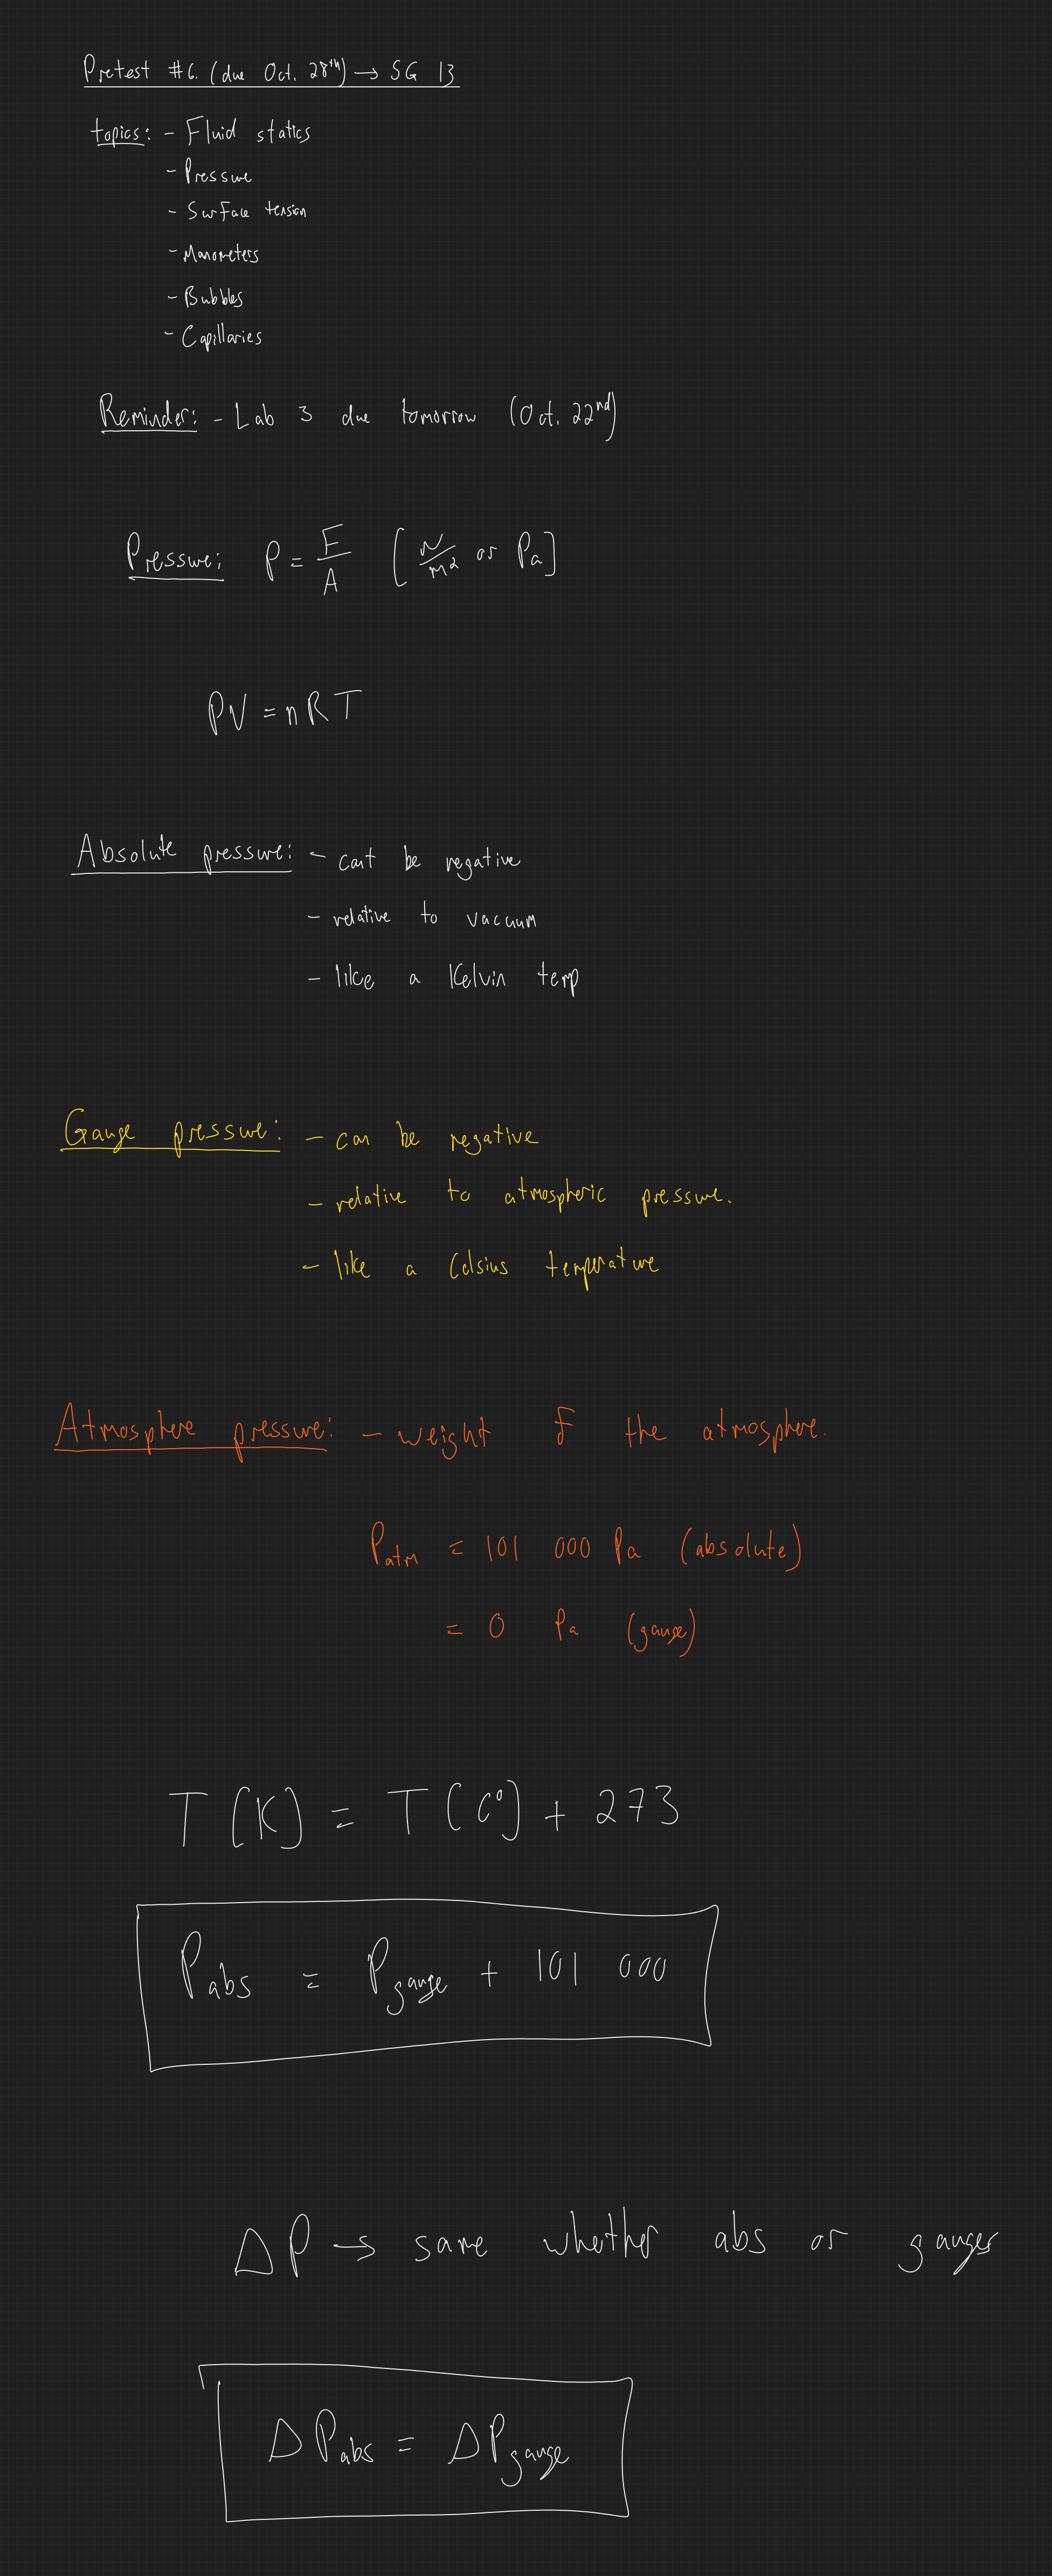 Pretest #6. (due Oct. 28th) → SG 13
topics: - Fluid statics
- Pressure
- Surface tension
- Manometers
- Bubbles
- Capillaries
Reminder: - Lab 3 due tomorrow (Oct. 22nd)
Pressure: P = F/A [N/m² or Pa]
PV = nRT
Absolute pressure: - cant be negative
- relative to vacuum
- like a Kelvin temp
Gauge pressure: - can be negative
- relative to atmospheric pressure.
- like a Celsius temperature
Atmosphere pressure: - weight of the atmosphere.
Patm = 101 000 Pa (absolute)
= 0 Pa (gauge)
T (K) = T (C°) + 273
Pabs = Pgauge + 101 000
ΔP → same whether abs or gauges
ΔPabs = ΔPgauge